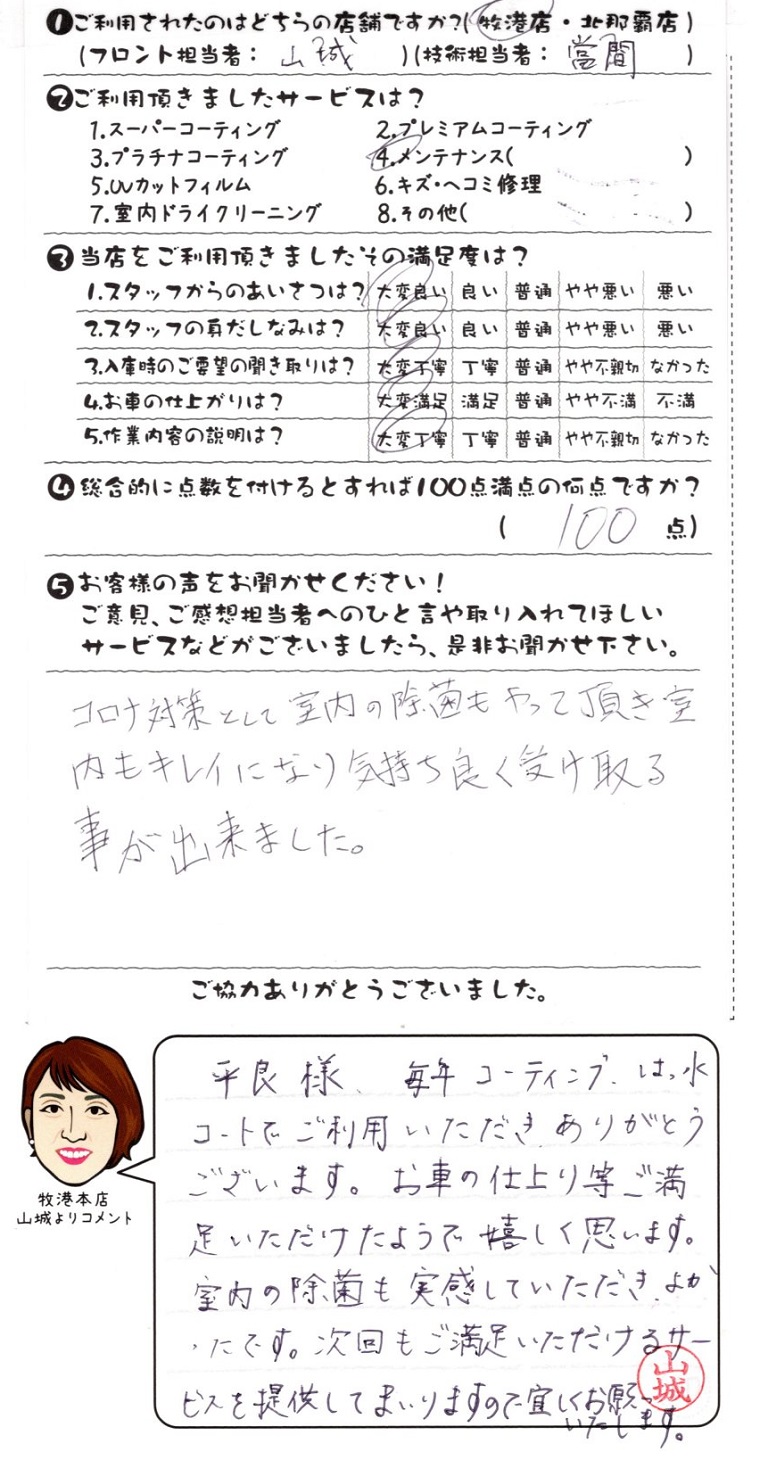 ❶ご利用されたのはどちらの店舗ですか?(牧港店・北那覇店)
(フロント担当者: 山城 )(技術担当者: 當間 )
❷ご利用頂きましたサービスは?
1.スーパーコーティング 2.プレミアムコーティング
3.プラチナコーティング 4.メンテナンス( )
5.UVカットフィルム 6.キズ・ヘコミ修理
7.室内ドライクリーニング 8.その他( )
❸当店をご利用頂きましたその満足度は?
1.スタッフからのあいさつは? 大変良い 良い 普通 やや悪い 悪い
2.スタッフの身だしなみは? 大変良い 良い 普通 やや悪い 悪い
3.入庫時のご要望の聞き取りは? 大変丁寧 丁寧 普通 やや不親切 なかった
4.お車の仕上がりは? 大変満足 満足 普通 やや不満 不満
5.作業内容の説明は? 大変丁寧 丁寧 普通 やや不親切 なかった
❹総合的に点数を付けるとすれば100点満点の何点ですか?
( 100 点)
❺お客様の声をお聞かせください!
ご意見、ご感想担当者へのひと言や取り入れてほしい
サービスなどがございましたら、是非お聞かせ下さい。
コロナ対策として室内の除菌もやって頂き室
内もキレイになり気持ち良く受け取る
事が出来ました。
ご協力ありがとうございました。
平良様、毎年コーティング、はっ水
コートでご利用いただき、ありがとう
ございます。お車の仕上り等ご満
足いただけたようで嬉しく思います。
室内の除菌も実感していただき、よか
ったです。次回もご満足いただけるサー
ビスを提供してまいりますので宜しくお願い
いたします。
山城
牧港本店
山城よりコメント